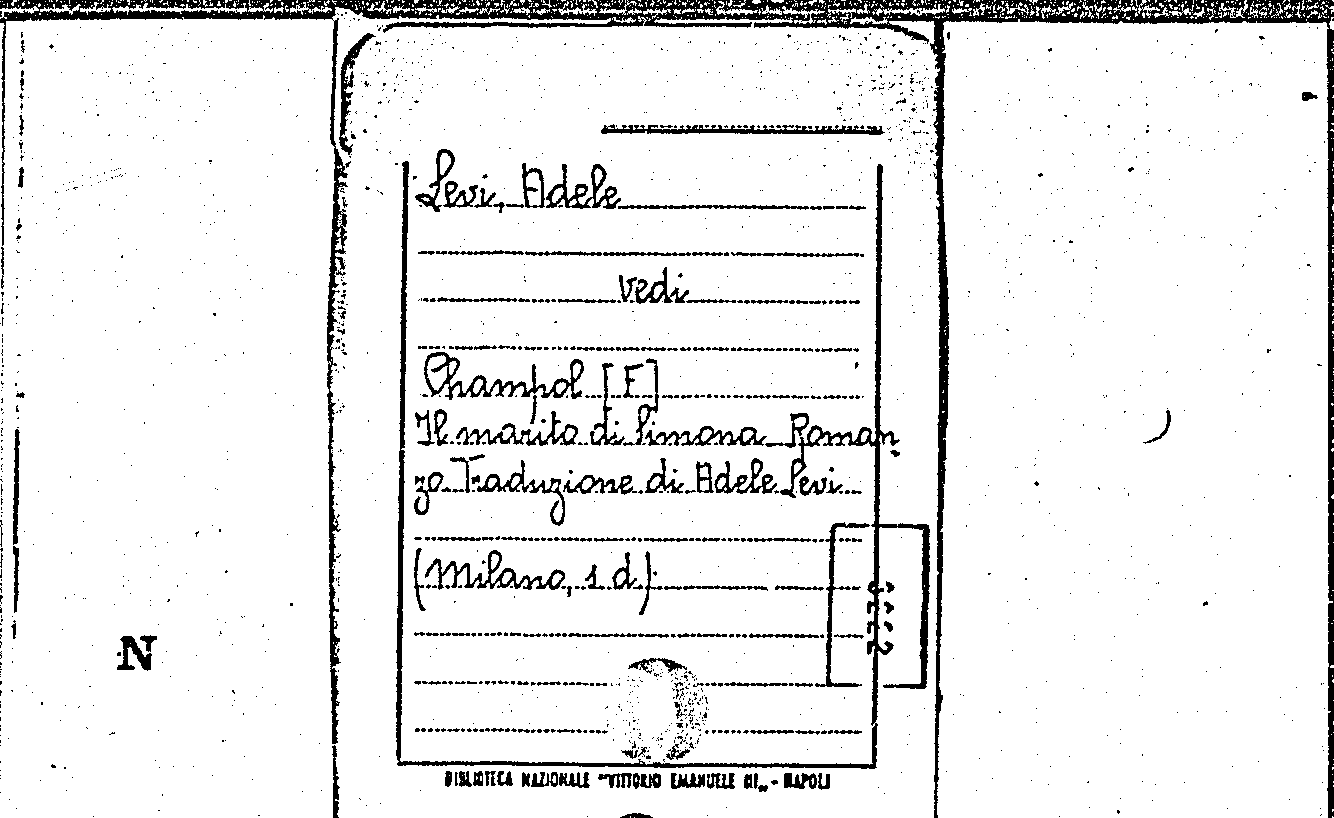 Levi, Adele
vedi
Champol [F]
Il marito di Simona Roman,
zo Traduzione di Adele Levi
(Milano, s d).
N
BIBLIOTECA NAZIONALE "VITTORIO EMANUELE III„ - NAPOLI